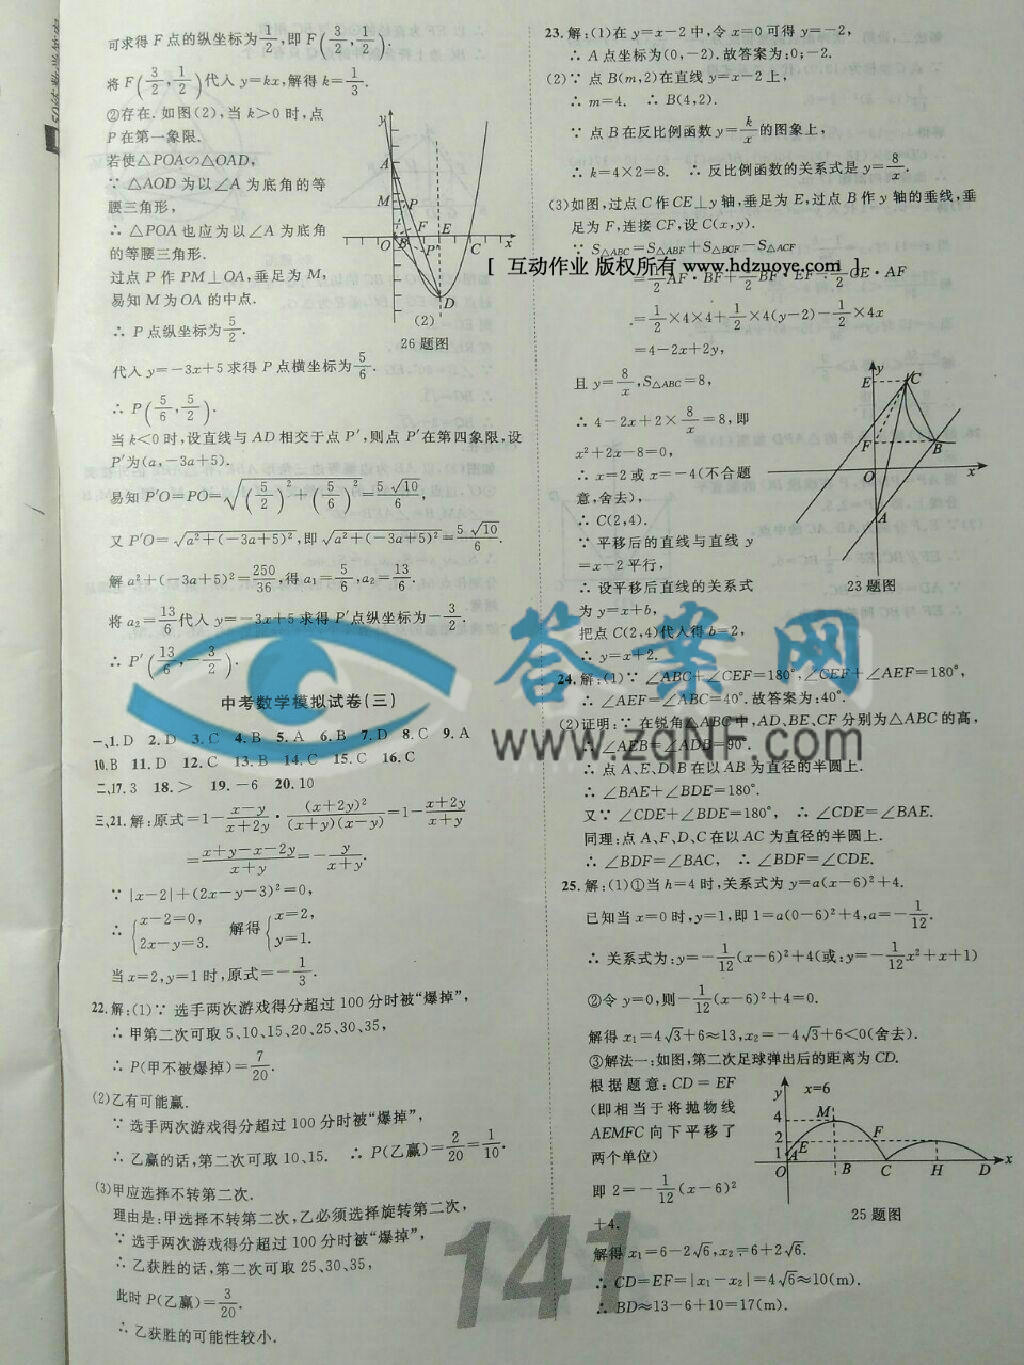 可求得 F 点的纵坐标为1/2,即 F(3/2,1/2).
将 F(3/2,1/2)代入 y=kx,解得 k=1/3.
②存在.如图(2),当 k>0 时,点
P 在第一象限.
若使△POA∽△OAD,
∵ △AOD 为以∠A 为底角的等
腰三角形,
∴ △POA 也应为以∠A 为底角
的等腰三角形.
过点 P 作 PM⊥OA,垂足为 M,
易知 M 为 OA 的中点.
∴ P 点纵坐标为5/2.
y
A
M
P
F
E
O
B
P′
C
x
D
(2)
26题图
代入 y=-3x+5 求得 P 点横坐标为5/6.
∴ P(5/6,5/2).
当 k<0 时,设直线与 AD 相交于点 P′,则点 P′在第四象限,设
P′为(a,-3a+5).
易知 P′O=PO=√((5/2)²+(5/6)²)=5√10/6,
又 P′O=√(a²+(-3a+5)²),即√(a²+(-3a+5)²)=5√10/6.
解 a²+(-3a+5)²=250/36,得 a₁=5/6,a₂=13/6.
将 a₂=13/6代入 y=-3x+5 求得 P′点纵坐标为-3/2.
∴ P′(13/6,-3/2).
中考数学模拟试卷(三)
一、1.D 2.D 3.C 4.B 5.A 6.B 7.D 8.C 9.A
10.B 11.D 12.C 13.B 14.C 15.C 16.C
二、17.3 18.> 19.-6 20.10
三、21.解:原式=1-(x-y)/(x+2y)·(x+2y)²/((x+y)(x-y))=1-(x+2y)/(x+y)
=(x+y-x-2y)/(x+y)=-y/(x+y).
∵ |x-2|+(2x-y-3)²=0,
∴ {x-2=0, 2x-y=3. 解得{x=2, y=1.
当 x=2,y=1 时,原式=-1/3.
22.解:(1)∵ 选手两次游戏得分超过 100 分时被“爆掉”,
∴ 甲第二次可取 5、10、15、20、25、30、35,
∴ P(甲不被爆掉)=7/20.
(2)乙有可能赢.
∵ 选手两次游戏得分超过 100 分时被“爆掉”,
∴ 乙赢的话,第二次可取 10、15. ∴ P(乙赢)=2/20=1/10.
(3)甲应选择不转第二次.
理由是:甲选择不转第二次,乙必须选择旋转第二次,
∵ 选手两次游戏得分超过 100 分时被“爆掉”,
∴ 乙获胜的话,第二次可取 25、30、35,
此时 P(乙赢)=3/20,
∴ 乙获胜的可能性较小.
23.解:(1)在 y=x-2 中,令 x=0 可得 y=-2,
∴ A 点坐标为(0,-2).故答案为:0;-2.
(2)∵ 点 B(m,2)在直线 y=x-2 上,
∴ m=4. ∴ B(4,2).
∵ 点 B 在反比例函数 y=k/x的图象上,
∴ k=4×2=8. ∴ 反比例函数的关系式是 y=8/x.
(3)如图,过点 C 作 CE⊥y 轴,垂足为 E,过点 B 作 y 轴的垂线,垂
足为 F,连接 CF,设 C(x,y).
∵ S△ABC=S△ABF+S△BCF-S△ACF
[ 互动作业 版权所有 www.hdzuoye.com ]
=1/2×4×4+1/2×4(y-2)-1/2×4x
=4-2x+2y,
且 y=8/x,S△ABC=8,
∴ 4-2x+2×8/x=8,即
x²+2x-8=0,
∴ x=2 或 x=-4(不合题
意,舍去),
∴ C(2,4).
∵ 平移后的直线与直线 y
=x-2 平行,
∴ 设平移后直线的关系式
为 y=x+b,
把点 C(2,4)代入得 b=2,
∴ y=x+2.
y
E
C
F
B
O
x
A
23题图
24.解:(1)∵ ∠ABC+∠CEF=180°,∠CEF+∠AEF=180°,
∴ ∠AEF=∠ABC=40°.故答案为:40°.
(2)证明:∵ 在锐角△ABC 中,AD、BE、CF 分别为△ABC 的高,
∴ ∠AEB=∠ADB=90°.
∴ 点 A、E、D、B 在以 AB 为直径的半圆上.
∴ ∠BAE+∠BDE=180°.
又∵ ∠CDE+∠BDE=180°, ∴ ∠CDE=∠BAE.
同理:点 A、F、D、C 在以 AC 为直径的半圆上.
∴ ∠BDF=∠BAC, ∴ ∠BDF=∠CDE.
25.解:(1)①当 h=4 时,关系式为 y=a(x-6)²+4.
已知当 x=0 时,y=1,即 1=a(0-6)²+4,a=-1/12.
∴ 关系式为:y=-1/12(x-6)²+4(或:y=-1/12x²+x+1)
②令 y=0,则-1/12(x-6)²+4=0.
解得 x₁=4√3+6≈13,x₂=-4√3+6<0(舍去).
③解法一:如图,第二次足球弹出后的距离为 CD.
根据题意:CD=EF
(即相当于将抛物线
AEMFC 向下平移了
两个单位)
即 2=-1/12(x-6)²
+4.
y
x=6
4
M
2
E
F
1
A
O
B
C
H
D
x
25题图
解得 x₁=6-2√6,x₂=6+2√6.
∴ CD=EF=|x₁-x₂|=4√6≈10(m).
∴ BD≈13-6+10=17(m).
答案网
www.zqNF.com
141